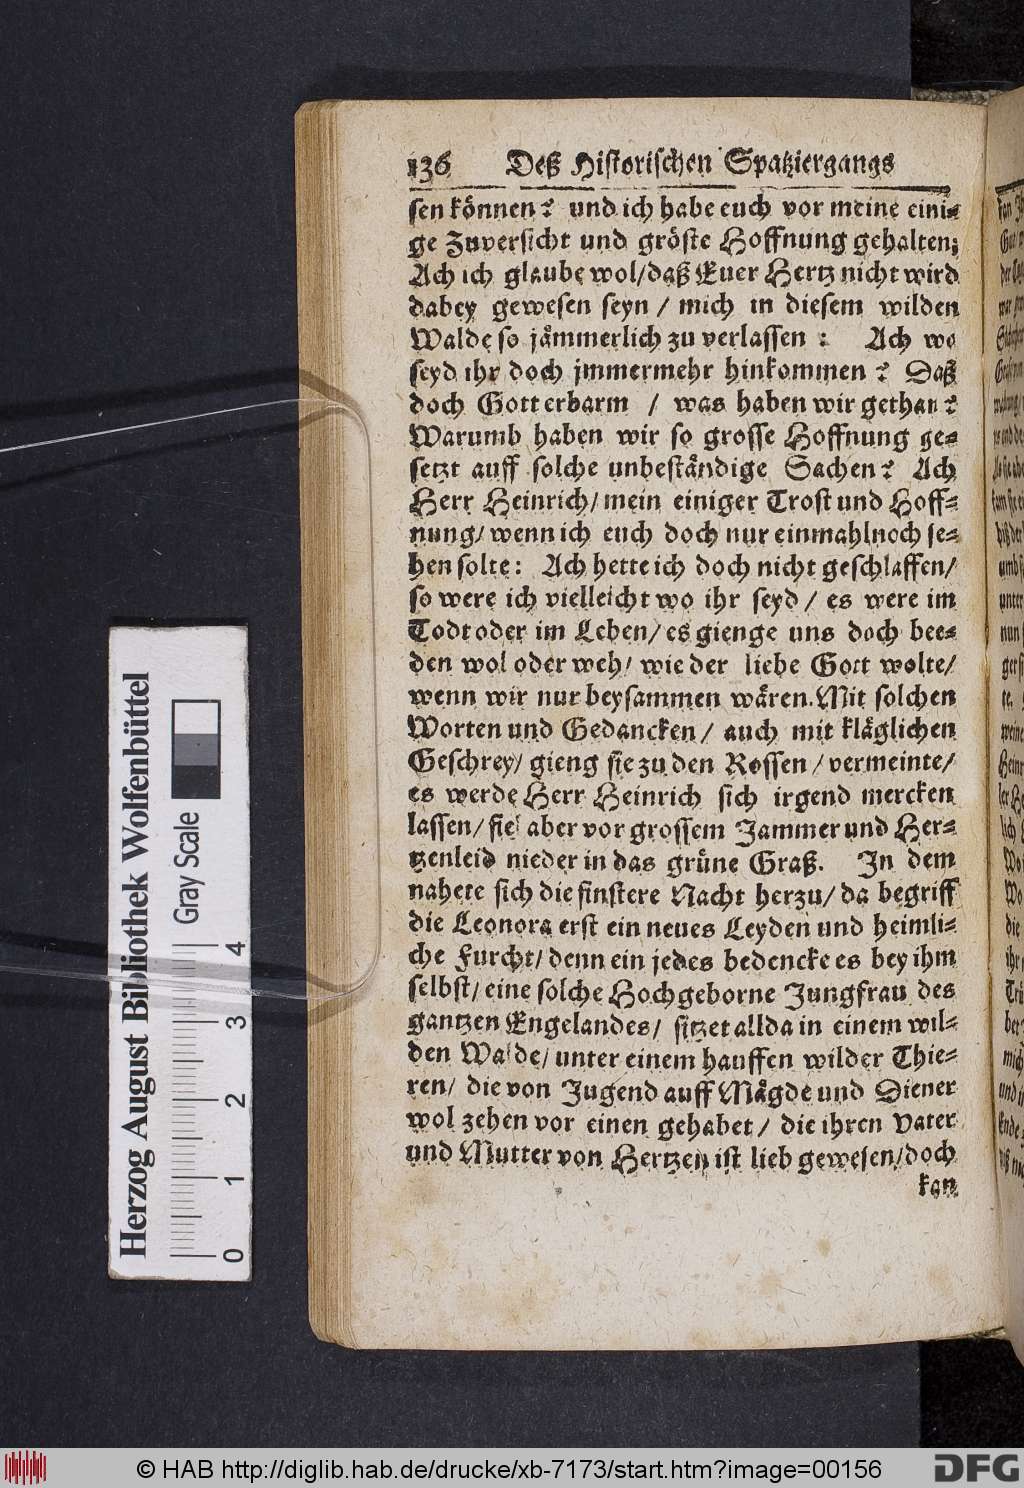 136 Deß Historischen Spatziergangs
sen können? und ich habe euch vor meine eini-
ge Zuversicht und gröste Hoffnung gehalten;
Ach ich glaube wol/daß Euer Hertz nicht wird
dabey gewesen seyn / mich in diesem wilden
Walde so jämmerlich zu verlassen : Ach wo
seyd ihr doch jmmermehr hinkommen ? Daß
doch Gott erbarm / was haben wir gethan?
Warumb haben wir so grosse Hoffnung ge-
setzt auff solche unbeständige Sachen? Ach
Herr Heinrich/mein einiger Trost und Hoff-
nung/ wenn ich euch doch nur einmahl noch se-
hen solte: Ach hette ich doch nicht geschlaffen/
so were ich vielleicht wo ihr seyd / es were im
Todt oder im Leben/ es gienge uns doch bee-
den wol oder weh/ wie der liebe Gott wolte/
wenn wir nur beysammen wären. Mit solchen
Worten und Gedancken / auch mit kläglichen
Geschrey/ gieng sie zu den Rossen / vermeinte/
es werde Herr Heinrich sich irgend mercken
lassen/ fiel aber vor grossem Jammer und Her-
tzenleid nieder in das grüne Graß. In dem
nahete sich die finstere Nacht herzu/ da begriff
die Leonora erst ein neues Leyden und heimli-
che Furcht/ denn ein jedes bedencke es bey ihm
selbst/ eine solche Hochgeborne Jungfrau des
gantzen Engelandes/ sitzet allda in einem wil-
den Walde/ unter einem hauffen wilder Thie-
ren/ die von Jugend auff Mägde und Diener
wol zehen vor einen gehabet / die ihren Vater
und Mutter von Hertzen ist lieb gewesen/doch
kan
Herzog August Bibliothek Wolfenbüttel
Gray Scale
0 1 2 3 4
© HAB http://diglib.hab.de/drucke/xb-7173/start.htm?image=00156
DFG